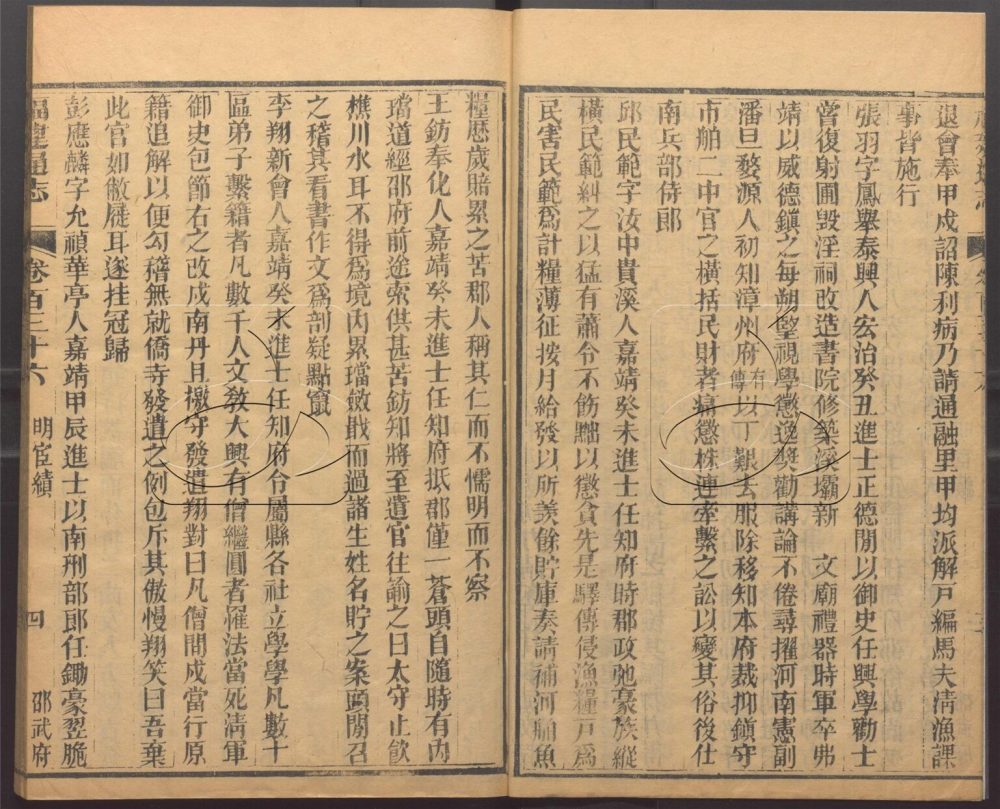 退會奉甲戌詔陳利病乃請通融里甲均派解戸編馬夫淸漁課
事皆施行
張羽字鳳舉泰興人宏治癸丑進士正德閒以御史任興學勸士
嘗復射圃毀淫祠改造書院修築溪壩新 文廟禮器時軍卒弗
靖以威德鎭之每朔朢視學懲逸奬勸講論不倦尋擢河南憲副
潘旦婺源人初知漳州府有傳以丁艱去服除移知本府裁抑鎭守
市舶二中官之橫括民財者痛懲株連牽繫之訟以變其俗後仕
南兵部侍郎
邱民範字汝中貴溪人嘉靖癸未進士任知府時郡政弛豪族縱
橫民範糾之以猛有蕭令不飭黜以懲貪先是驛傳侵漁糧戸爲
民害民範爲計糧薄征按月給發以所羨餘貯庫奏請補河舶魚
糧歷歲賠累之苦郡人稱其仁而不懦明而不察
王鈁奉化人嘉靖癸未進士任知府抵郡僅一蒼頭自隨時有內
璫道經邵府前途索供甚苦鈁知將至遣官往諭之曰太守止飮
樵川水耳不得爲境內累璫斂戢而過諸生姓名貯之案頭閒召
之稽其看書作文爲剖疑點竄
李翔新會人嘉靖癸未進士任知府令屬縣各社立學學凡數十
區弟子繫籍者凡數千人文敎大興有僧繼圓者罹法當死淸軍
御史包節右之改戍南丹且檄守發遣翔對曰凡僧問戍當行原
籍追解以便勾稽無就僑寺發遣之例包斥其傲慢翔笑曰吾棄
此官如敝屣耳遂挂冠歸
彭應麟字允禎華亭人嘉靖甲辰進士以南刑部郎任鋤豪翌脆
福建通志
卷百三十六
明宦績
四
邵武府